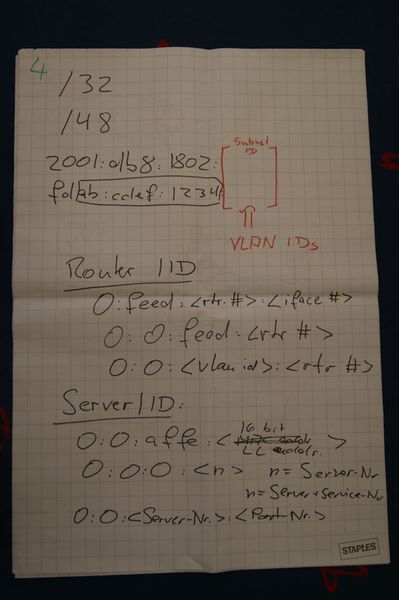 4
/32
/48
2001:db8:1802:
fd ab:cdef:1234:
Subnet
ID
VLAN IDs
Router IID
0:feed:<rtr #>:<iface #>
0:0:feed:<rtr #>
0:0:<vlan id>:<rtr #>
Server IID:
0:0:affe:<16 bit
LL addr.>
0:0:0:<n> n=Server-Nr
n=Server+Service-Nr
0:0:<Server-Nr.>:<Port-Nr.>
STAPLES